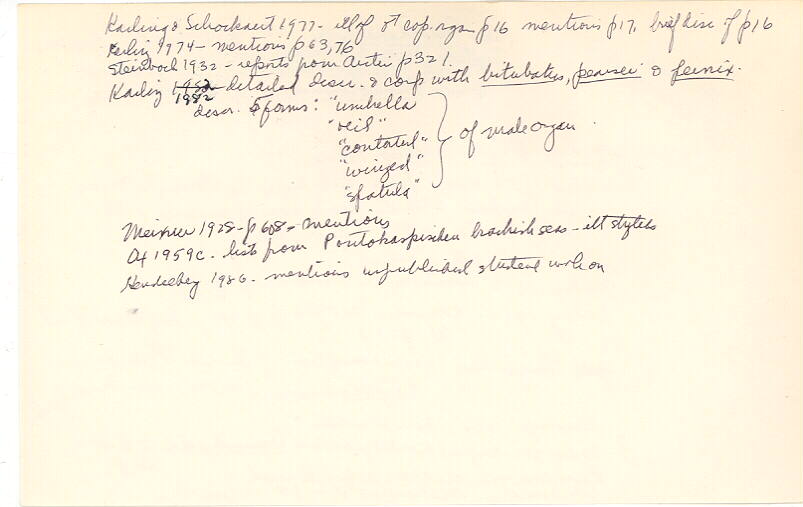 Karling & Schockaert 1977 - ill of ♂ cop. rgs p16 mentions p17, brief disc of p16
Karling 1974 - mentions p63, 76
Steinbock 1932 - reports from Arctic p321.
Karling 1952 1982 detailed descr. & comp with bitubatus, pearsei & feenix.
descr. 5 forms: "umbrella
"veil"
"contorted" of male organ.
"winged"
"spatula"
Meixner 1928 - p608 - mentions
Ax 1959c. lists from Pontokaspischen brackish seas - ill stylets
Hendelberg 1986 - mentions unpublished student work on